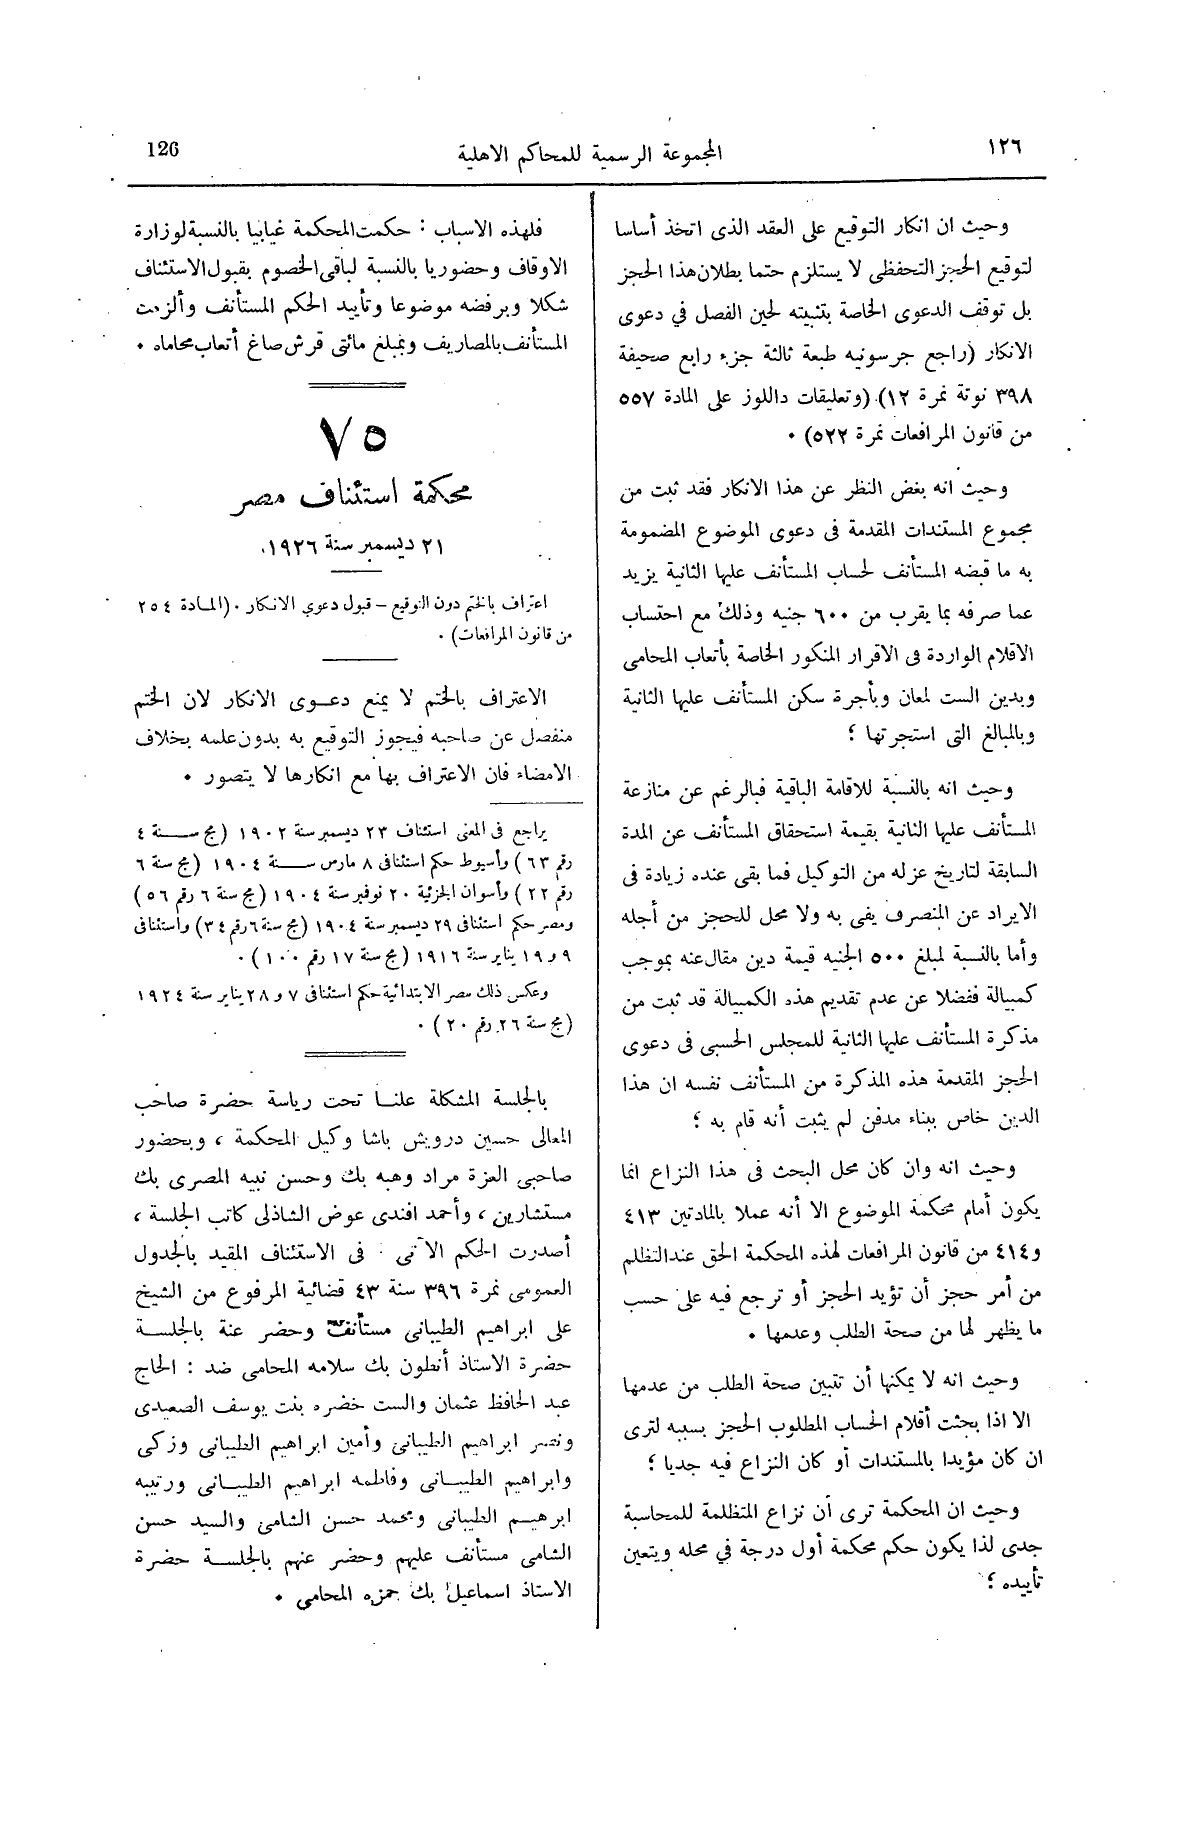 ١٢٦
المجموعة الرسمية للمحاكم الاهلية
126
وحيث ان انكار التوقيع على العقد الذى اتخذ أساسا
لتوقيع الحجز التحفظى لا يستلزم حتما بطلان هذا الحجز
بل توقف الدعوى الخاصة بتثبيته لحين الفصل في دعوى
الانكار (راجع جرسونيه طبعة ثالثة جزء رابع صحيفة
٣٩٨ نوتة نمرة ١٢) (وتعليقات داللوز على المادة ٥٥٧
من قانون المرافعات نمرة ٥٢٢) ٠
وحيث انه بغض النظر عن هذا الانكار فقد ثبت من
مجموع المستندات المقدمة فى دعوى الموضوع المضمومة
به ما قبضه المستأنف لحساب المستأنف عليها الثانية يزيد
عما صرفه بما يقرب من ٦٠٠ جنيه وذلك مع احتساب
الاقلام الواردة فى الاقرار المنكور الخاصة بأتعاب المحامى
وبدين الست لمعان وبأجرة سكن المستأنف عليها الثانية
وبالمبالغ التى استجرتها ؛
وحيث انه بالنسبة للاقامة الباقية فبالرغم عن منازعة
المستأنف عليها الثانية بقيمة استحقاق المستأنف عن المدة
السابقة لتاريخ عزله من التوكيل فما بقى عنده زيادة فى
الايراد عن المنصرف يفى به ولا محل للحجز من أجله
وأما بالنسبة لمبلغ ٥٠٠ الجنيه قيمة دين مقال عنه بموجب
كمبيالة ففضلا عن عدم تقديم هذه الكمبيالة قد ثبت من
مذكرة المستأنف عليها الثانية للمجلس الحسبى فى دعوى
الحجز المقدمة هذه المذكرة من المستأنف نفسه ان هذا
الدين خاص ببناء مدفن لم يثبت أنه قام به ؛
وحيث انه وان كان محل البحث فى هذا النزاع انما
يكون أمام محكمة الموضوع الا أنه عملا بالمادتين ٤١٣
و٤١٤ من قانون المرافعات لهذه المحكمة الحق عند التظلم
من أمر حجز أن تؤيد الحجز أو ترجع فيه على حسب
ما يظهر لها من صحة الطلب وعدمها ٠
وحيث انه لا يمكنها أن تتبين صحة الطلب من عدمها
الا اذا بحثت أقلام الحساب المطلوب الحجز بسببه لترى
ان كان مؤيدا بالمستندات أو كان النزاع فيه جديا ؛
وحيث ان المحكمة ترى أن نزاع المتظلمة للمحاسبة
جدى لذا يكون حكم محكمة أول درجة في محله ويتعين
تأييده ؛
فلهذه الاسباب : حكمت المحكمة غيابيا بالنسبة لوزارة
الاوقاف وحضوريا بالنسبة لباقى الخصوم بقبول الاستئناف
شكلا وبرفضه موضوعا وتأييد الحكم المستأنف وألزمت
المستأنف بالمصاريف وبمبلغ مائتى قرش صاغ أتعاب محاماه ٠
٧٥
محكمة استئناف مصر
٢١ ديسمبر سنة ١٩٢٦
اعتراف بالختم دون التوقيع – قبول دعوي الانكار ٠ (المادة ٢٥٤
من قانون المرافعات) ٠
الاعتراف بالختم لا يمنع دعوى الانكار لان الختم
منفصل عن صاحبه فيجوز التوقيع به بدون علمه بخلاف
الامضاء فان الاعتراف بها مع انكارها لا يتصور ٠
يراجع فى المعنى استئناف ٢٣ ديسمبر سنة ١٩٠٢ (مج سنة ٤
رقم ٦٣) وأسيوط حكم استئنافى ٨ مارس سنة ١٩٠٤ (مج سنة ٦
رقم ٢٢) وأسوان الجزئية ٢٠ نوفمبر سنة ١٩٠٤ (مج سنة ٦ رقم ٥٦)
ومصر حكم استئنافى ٢٩ ديسمبر سنة ١٩٠٤ (مج سنة ٦ رقم ٣٤) واستئنافى
٩ و١٩ يناير سنة ١٩١٦ (مج سنة ١٧ رقم ١٠٠) ٠
وعكس ذلك مصر الابتدائية حكم استئنافى ٧ و٢٨ يناير سنة ١٩٢٤
(مج سنة ٢٦ رقم ٢٠) ٠
بالجلسة المشكلة علنا تحت رياسة حضرة صاحب
المعالى حسين درويش باشا وكيل المحكمة ، وبحضور
صاحبى العزة مراد وهبه بك وحسن نبيه المصرى بك
مستشارين ، وأحمد افندى عوض الشاذلى كاتب الجلسة ،
أصدرت الحكم الآتى فى الاستئناف المقيد بالجدول
العمومى نمرة ٣٩٦ سنة ٤٣ قضائية المرفوع من الشيخ
على ابراهيم الطيبانى مستأنف وحضر عنة بالجلسة
حضرة الاستاذ أنطون بك سلامه المحامى ضد : الحاج
عبد الحافظ عثمان والست خضره بنت يوسف الصعيدى
ونصر ابراهيم الطيبانى وأمين ابراهيم الطيبانى وزكى
وابراهيم الطيبانى وفاطمه ابراهيم الطيبانى ورتيبه
ابرهيم الطيبانى ومحمد حسن الشامى والسيد حسن
الشامى مستأنف عليهم وحضر عنهم بالجلسة حضرة
الاستاذ اسماعيل بك حمزه المحامى ٠